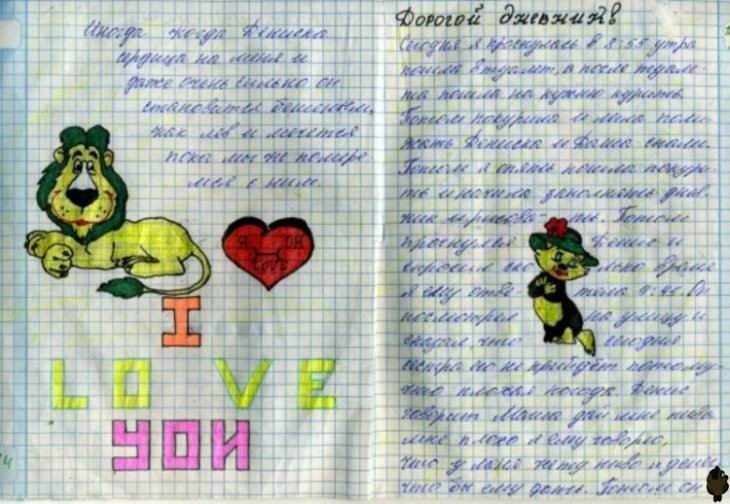 Иногда когда Дениска
сердица на меня и
даже очень сильно он
становится бешенный,
как лев и мечется
пока мы не помире
мся с ним.
Я ОН
LOVE
I
LOVE
YOU
Дорогой дневник
Сегодня я проснулась в 8:55 утра
пошла в туалет, а после туале-
та пошла на кухню курить.
Потом покурила и легла поле
жать Дениска и Даша спали.
Потом я опять пошла покури-
ть и начила заполнять днев
ник и рисова- ть. Потом
проснулся Денис и
спросил ско лько время
я ему отве тела 9:45. Он
посмотрел на улицу и
сказал, что сегодня
сестра его не прийдёт потому-
что плохая погода. Денис
говорит Мамка дай мне пива
мне плохо я ему говорю,
что у меня нету пива и денег
что бы ему дать. Потом он